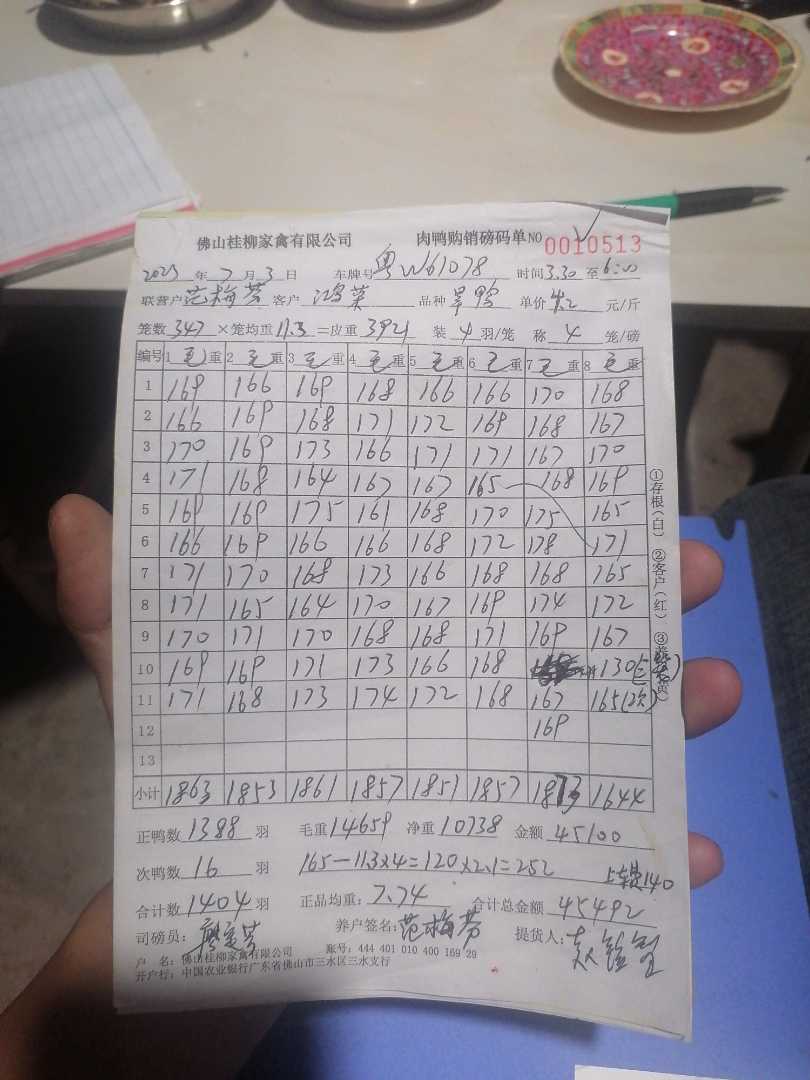 佛山桂柳家禽有限公司 肉鸭购销磅码单 NO 0010513
2023年7月3日 车牌号 粤W61078 时间 3.30 至 6:00
联营户 范梅芬 客户 鸿菜 品种 旱鸭 单价 4.2 元/斤
笼数 347 ×笼均重 11.3 =皮重 3921 装 4 羽/笼 称 4 笼/磅
编号 1 毛 重 2 毛 重 3 毛 重 4 毛 重 5 毛 重 6 毛 重 7 毛 重 8 毛 重
1 169 166 169 168 166 166 170 168
2 166 169 168 171 172 169 168 167
3 170 169 173 166 171 171 167 170
4 171 168 164 167 167 165 168 169
5 169 169 175 161 168 170 175 165
6 166 169 166 166 168 172 178 171
7 171 170 168 173 166 168 168 165
8 171 165 164 170 167 169 174 172
9 170 171 170 168 168 171 169 167
10 169 169 171 173 166 168 130
11 171 168 173 174 172 168 167 165(次)
12 169
13
小计 1863 1853 1861 1857 1851 1857 1873 1644
正鸭数 1388 羽 毛重 14659 净重 10738 金额 45100
次鸭数 16 羽 165-11.3×4=120×2.1=252 上车费140
合计数 1404 羽 正品均重: 7.74 合计总金额 45492
司磅员: 养户签名: 范梅芬 提货人:
户 名: 佛山桂柳家禽有限公司 账号: 444 401 010 400 169 29
开户行: 中国农业银行广东省佛山市三水区三水支行
①存根(白) ②客户(红) ③